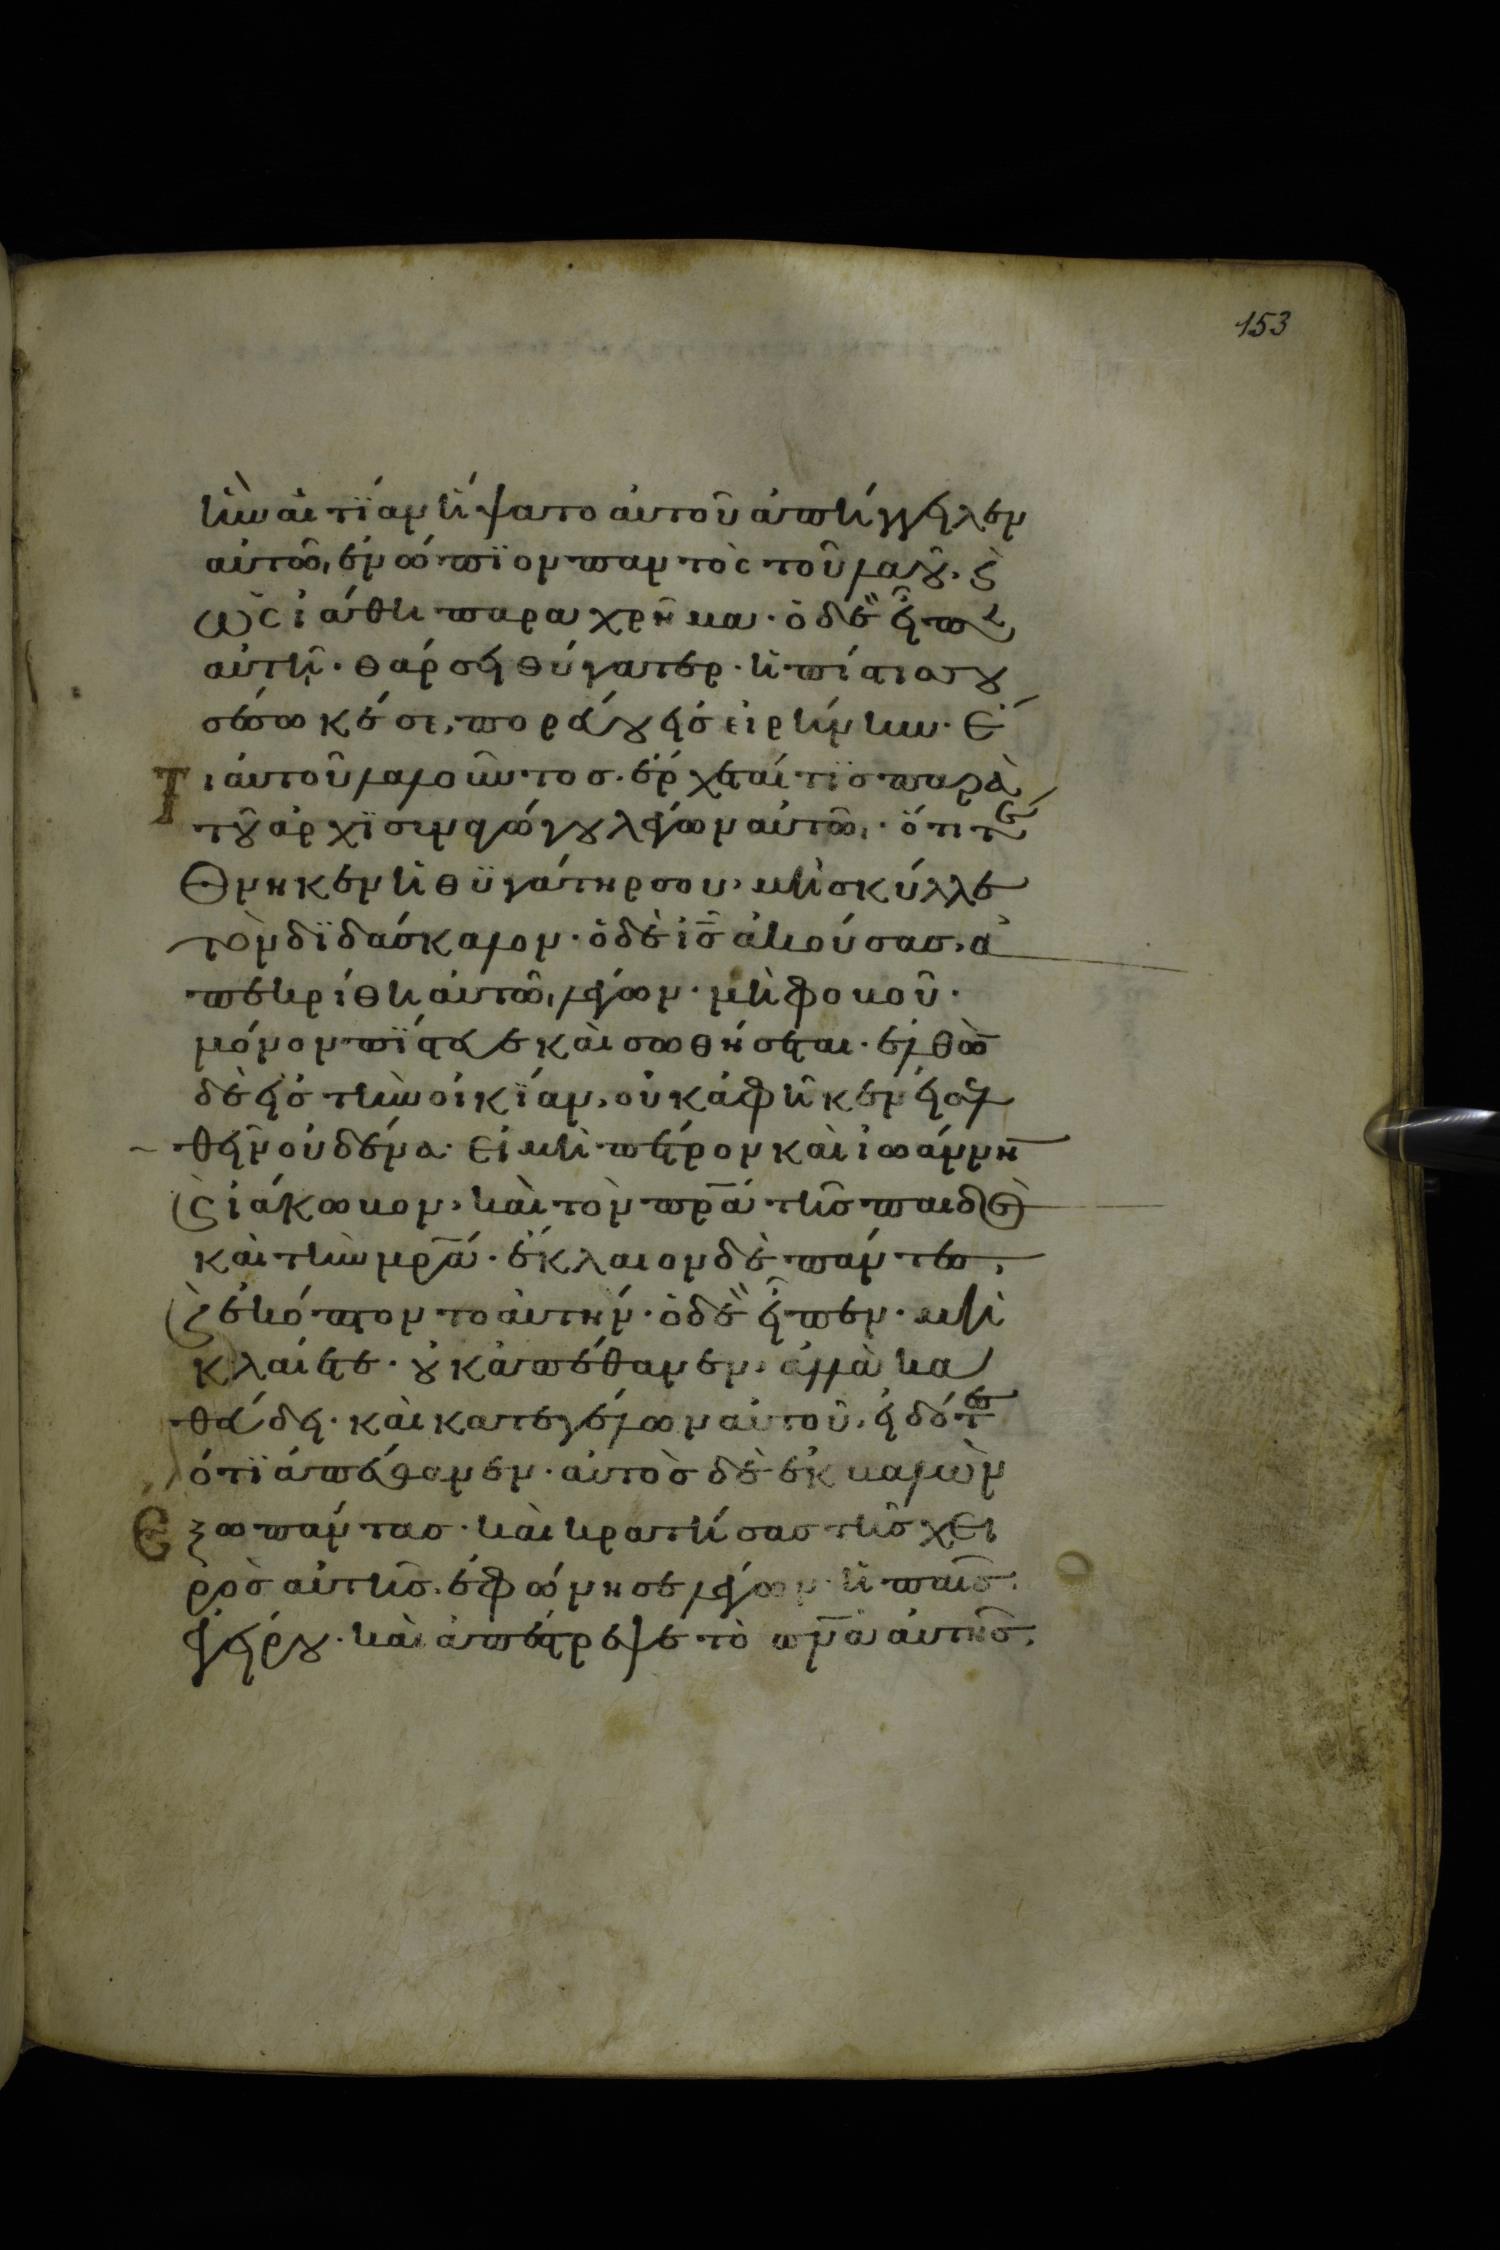 153
ἣν αἰτίαν ἥψατο αὐτοῦ ἀπήγγειλεν
αὐτῶ, ἐνώπϊον παντὸς τοῦ λαοῦ, ϗ
ὡς ἰάθη παραχρῆμα· ὁ δὲ εἶπεν
αὐτῆ· θάρσει θύγατερ· ἡ πίστισ σου
σέσωκέ σε, πορεύου εἰσ εἰρήνην· ἔ
τι αὐτοῦ λαλοῦντοσ· ἔρχεταί τϊσ παρὰ
τοῦ ἀρχϊσυναγώγου λέγων αὐτῶ· ὅτι τέ
θνηκεν ἡ θϋγάτηρ σου, μὴ σκύλλε
τὸν δϊδάσκαλον· ὁ δὲ ἰ̅σ̅ ἀκούσασ, ἀ
πεκρίθη αὐτῶ, λέγων· μὴ φοβοῦ·
μόνον πϊστευε καὶ σωθήσεται· ἐλθὼν
δὲ εἰσ τὴν οἰκίαν, οὐκ ἀφῆκεν εἰσελ
θεῖν οὐδένα· εἰ μὴ πέτρον καὶ ἰωάννην
ϗ ἰάκωβον, καὶ τὸν π̅ρ̅α̅ τῆσ παιδὸσ
καὶ τὴν μ̅ρ̅α̅· ἔκλαιον δὲ πάντεσ,
ϗ ἐκόπτοντο αὐτήν· ὁ δὲ εἶπεν· μὴ
κλαίετε· οὐκ ἀπέθανεν, ἀλλὰ κα
θεύδει· καὶ κατεγέλων αὐτοῦ, εἰδότεσ
ότϊ ἀπέθανεν· αὐτὸσ δὲ ἐκβαλὼν
ἔξω πάντασ· καὶ κρατήσασ τῆσ χει
ρὸσ αὐτῆσ, ἐφώνησε λέγων· ἡ παῖσ
ἐγείρου· καὶ ἀπέστρεψε τὸ π̅ν̅α̅ αὐτῆσ,